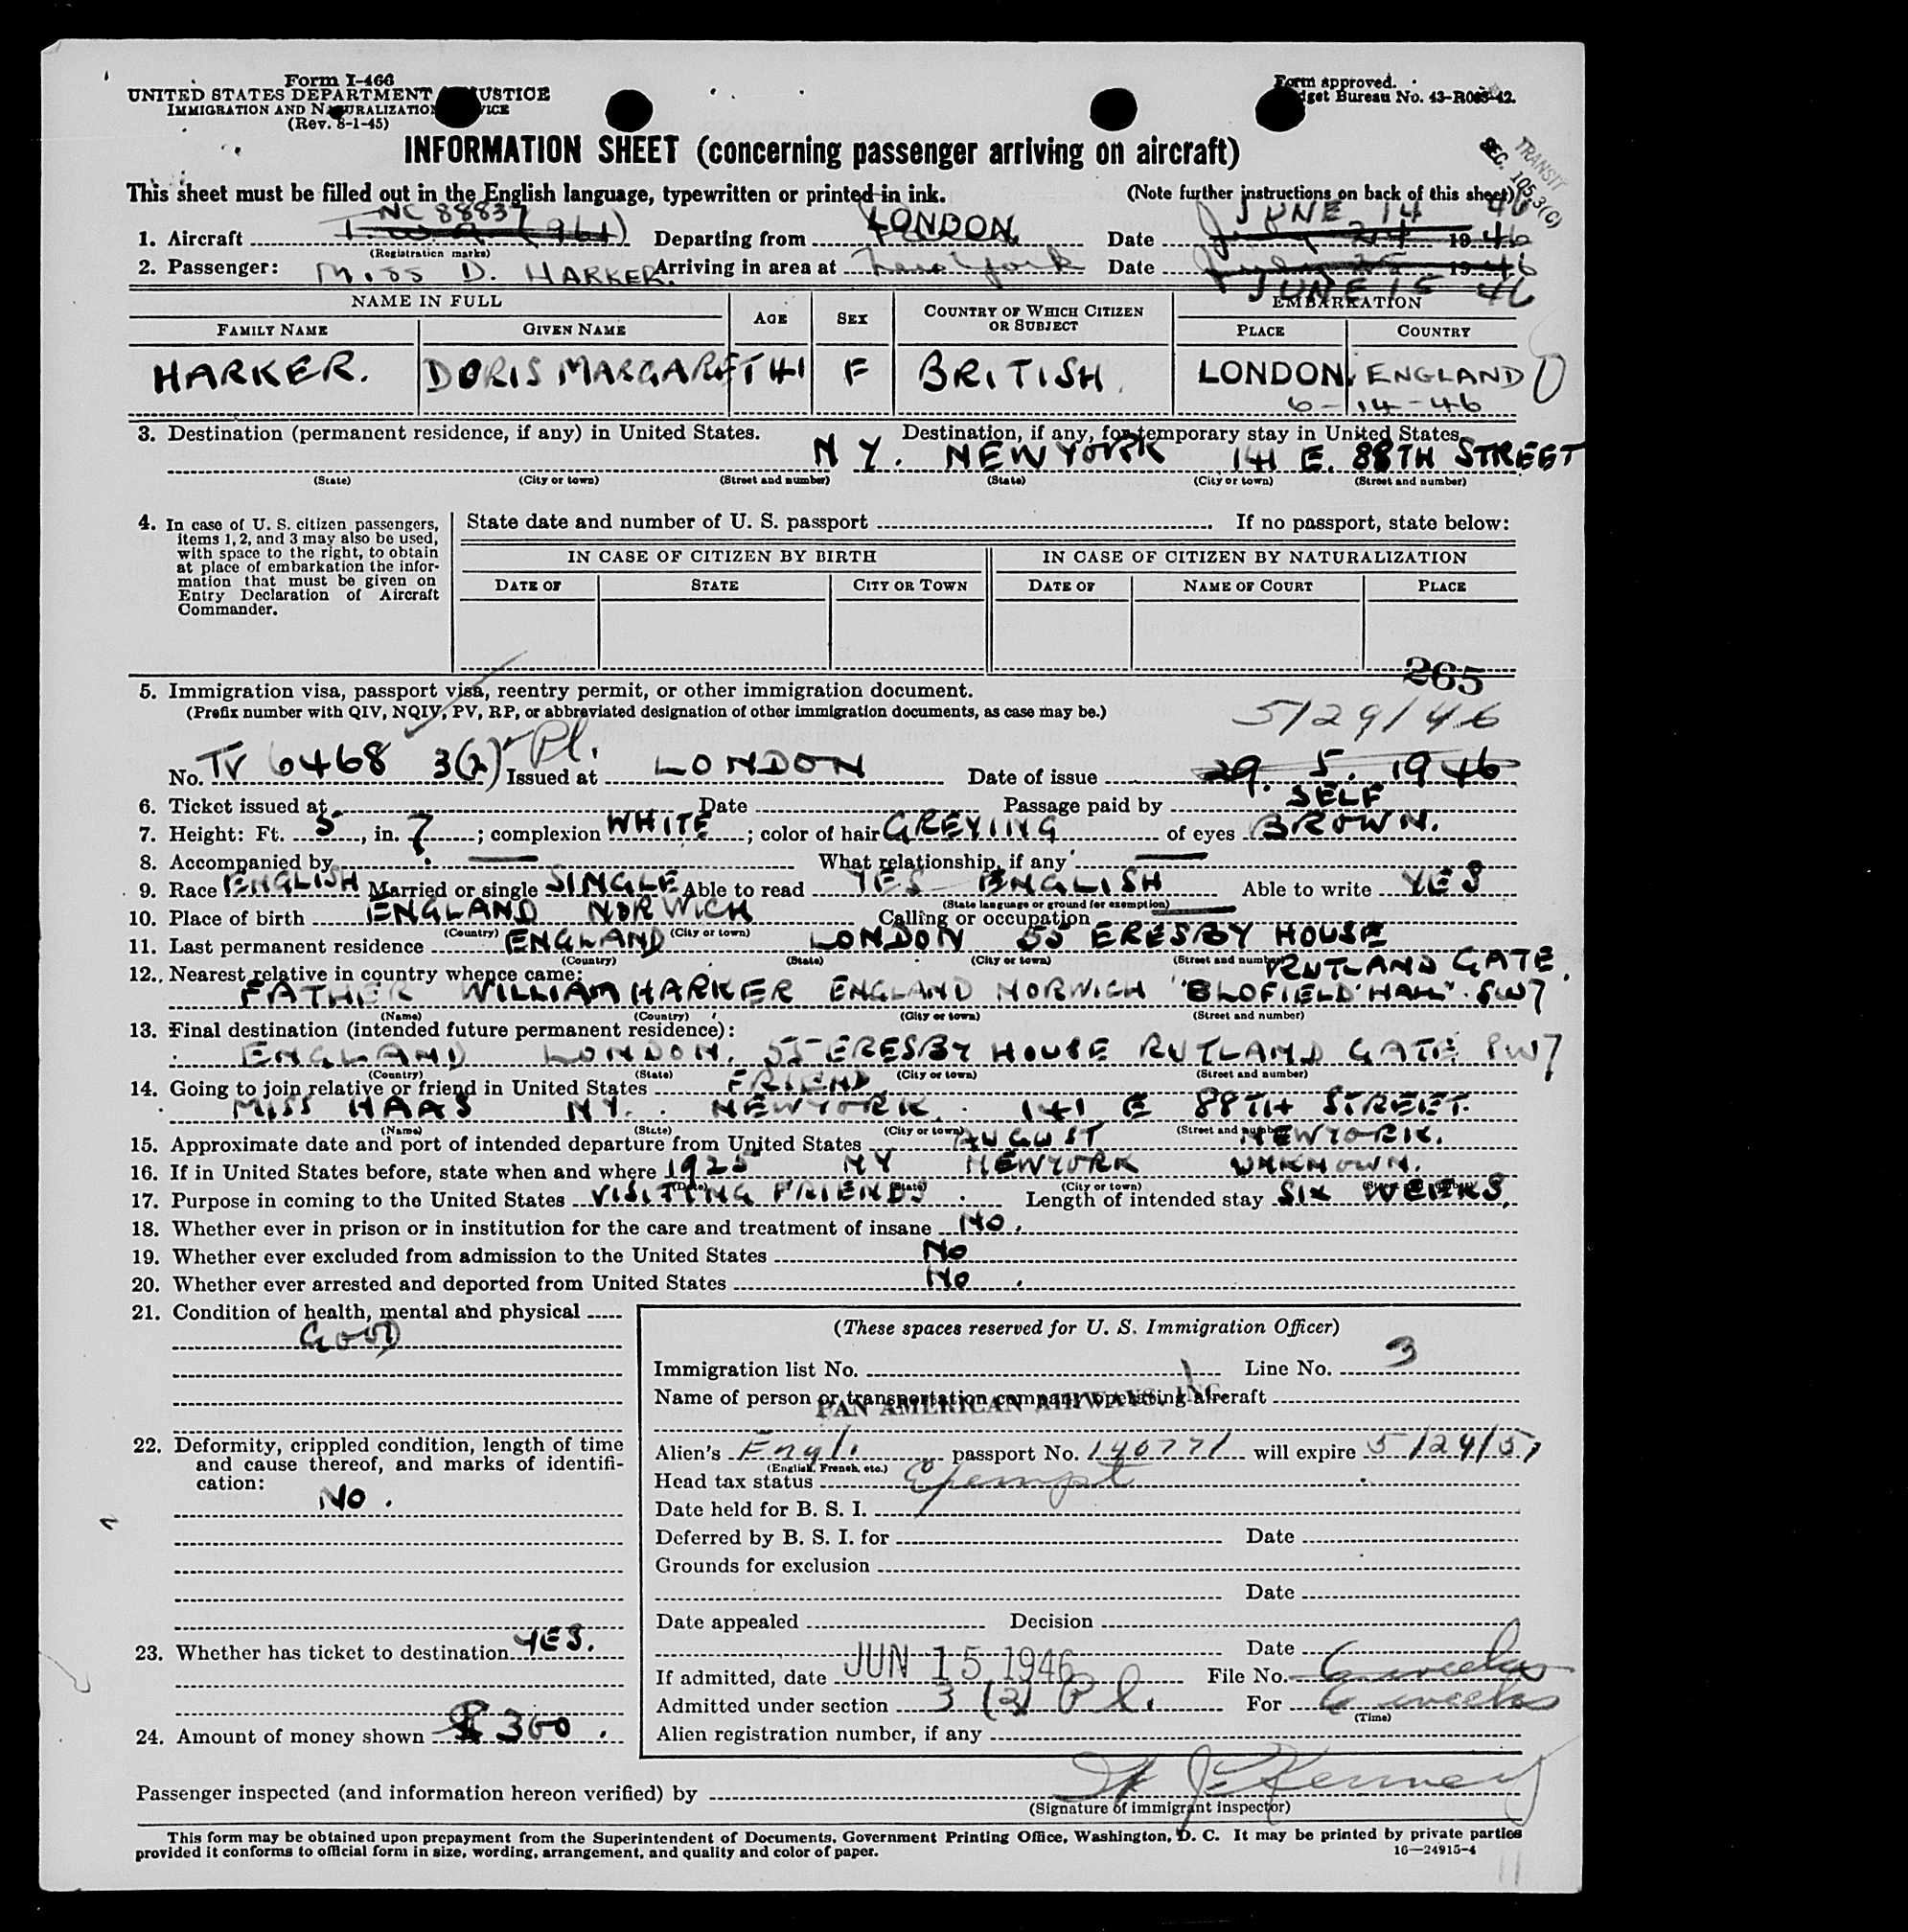 Form I-466
UNITED STATES DEPARTMENT USTICE
IMMIGRATION AND NATURALIZATION VICE
(Rev. 8-1-45)
Form approved.
dget Bureau No. 43-R065-42.
TRANSIT
SEC. 105.3(C)
INFORMATION SHEET (concerning passenger arriving on aircraft)
This sheet must be filled out in the English language, typewritten or printed in ink. (Note further instructions on back of this sheet)
NC 88837 JUNE 14 46
1. Aircraft T.W.A. (961) Departing from LONDON Date July 24 1946
(Registration marks)
2. Passenger: Miss D. HARKER. Arriving in area at New York Date July 25 1946
JUNE 15 46
NAME IN FULL AGE SEX COUNTRY OF WHICH CITIZEN OR SUBJECT EMBARKATION
FAMILY NAME GIVEN NAME PLACE COUNTRY
HARKER. DORIS MARGARET 41 F BRITISH. LONDON. ENGLAND
6-14-46
3. Destination (permanent residence, if any) in United States. Destination, if any, for temporary stay in United States.
N Y. NEW YORK 141 E. 88TH STREET
(State) (City or town) (Street and number) (State) (City or town) (Street and number)
4. In case of U. S. citizen passengers, items 1, 2, and 3 may also be used, with space to the right, to obtain at place of embarkation the information that must be given on Entry Declaration of Aircraft Commander.
State date and number of U. S. passport . If no passport, state below:
IN CASE OF CITIZEN BY BIRTH IN CASE OF CITIZEN BY NATURALIZATION
DATE OF STATE CITY OR TOWN DATE OF NAME OF COURT PLACE
265
5. Immigration visa, passport visa, reentry permit, or other immigration document.
(Prefix number with QIV, NQIV, PV, RP, or abbreviated designation of other immigration documents, as case may be.)
5/29/46
No. TV 6468 3(2) Pl. Issued at LONDON Date of issue 29. 5. 1946
6. Ticket issued at Date Passage paid by SELF
7. Height: Ft. 5, in. 7; complexion WHITE; color of hair GREYING of eyes BROWN.
8. Accompanied by — What relationship, if any —
9. Race ENGLISH Married or single SINGLE Able to read YES ENGLISH Able to write YES
(State language or ground for exemption)
10. Place of birth ENGLAND NORWICH Calling or occupation —
(Country) (City or town)
11. Last permanent residence ENGLAND LONDON 55 ERESBY HOUSE
(Country) (State) (City or town) (Street and number) RUTLAND GATE,
12. Nearest relative in country whence came:
FATHER WILLIAM HARKER ENGLAND NORWICH "BLOFIELD HALL". SW7
(Name) (Country) (City or town) (Street and number)
13. Final destination (intended future permanent residence):
ENGLAND LONDON. 55 ERESBY HOUSE RUTLAND GATE SW7
(Country) (State) (City or town) (Street and number)
14. Going to join relative or friend in United States FRIEND
MISS HAAS NY. NEW YORK. 141 E 88TH STREET.
(Name) (State) (City or town) (Street and number)
15. Approximate date and port of intended departure from United States AUGUST NEW YORK.
16. If in United States before, state when and where 1925 NY NEW YORK UNKNOWN.
(Date) (State) (City or town) (Street and number)
17. Purpose in coming to the United States VISITING FRIENDS. Length of intended stay SIX WEEKS.
18. Whether ever in prison or in institution for the care and treatment of insane NO.
19. Whether ever excluded from admission to the United States No
20. Whether ever arrested and deported from United States No.
21. Condition of health, mental and physical
GOOD
22. Deformity, crippled condition, length of time and cause thereof, and marks of identification:
NO.
23. Whether has ticket to destination YES.
24. Amount of money shown $ 300.
(These spaces reserved for U. S. Immigration Officer)
Immigration list No. 1 Line No. 3
Name of person or transportation company operating aircraft
PAN AMERICAN AIRWAYS, INC.
Alien's Engl. passport No. 140771 will expire 5/24/51
(English, French, etc.)
Head tax status Exempt
Date held for B. S. I.
Deferred by B. S. I. for Date
Grounds for exclusion
Date
Date appealed Decision
Date
If admitted, date JUN 15 1946 File No. 6 weeks
Admitted under section 3 (2) Pl. For 6 weeks
(Time)
Alien registration number, if any
Passenger inspected (and information hereon verified) by
(Signature of immigrant inspector)
This form may be obtained upon prepayment from the Superintendent of Documents, Government Printing Office, Washington, D. C. It may be printed by private parties
provided it conforms to official form in size, wording, arrangement, and quality and color of paper. 16—24915-4
11